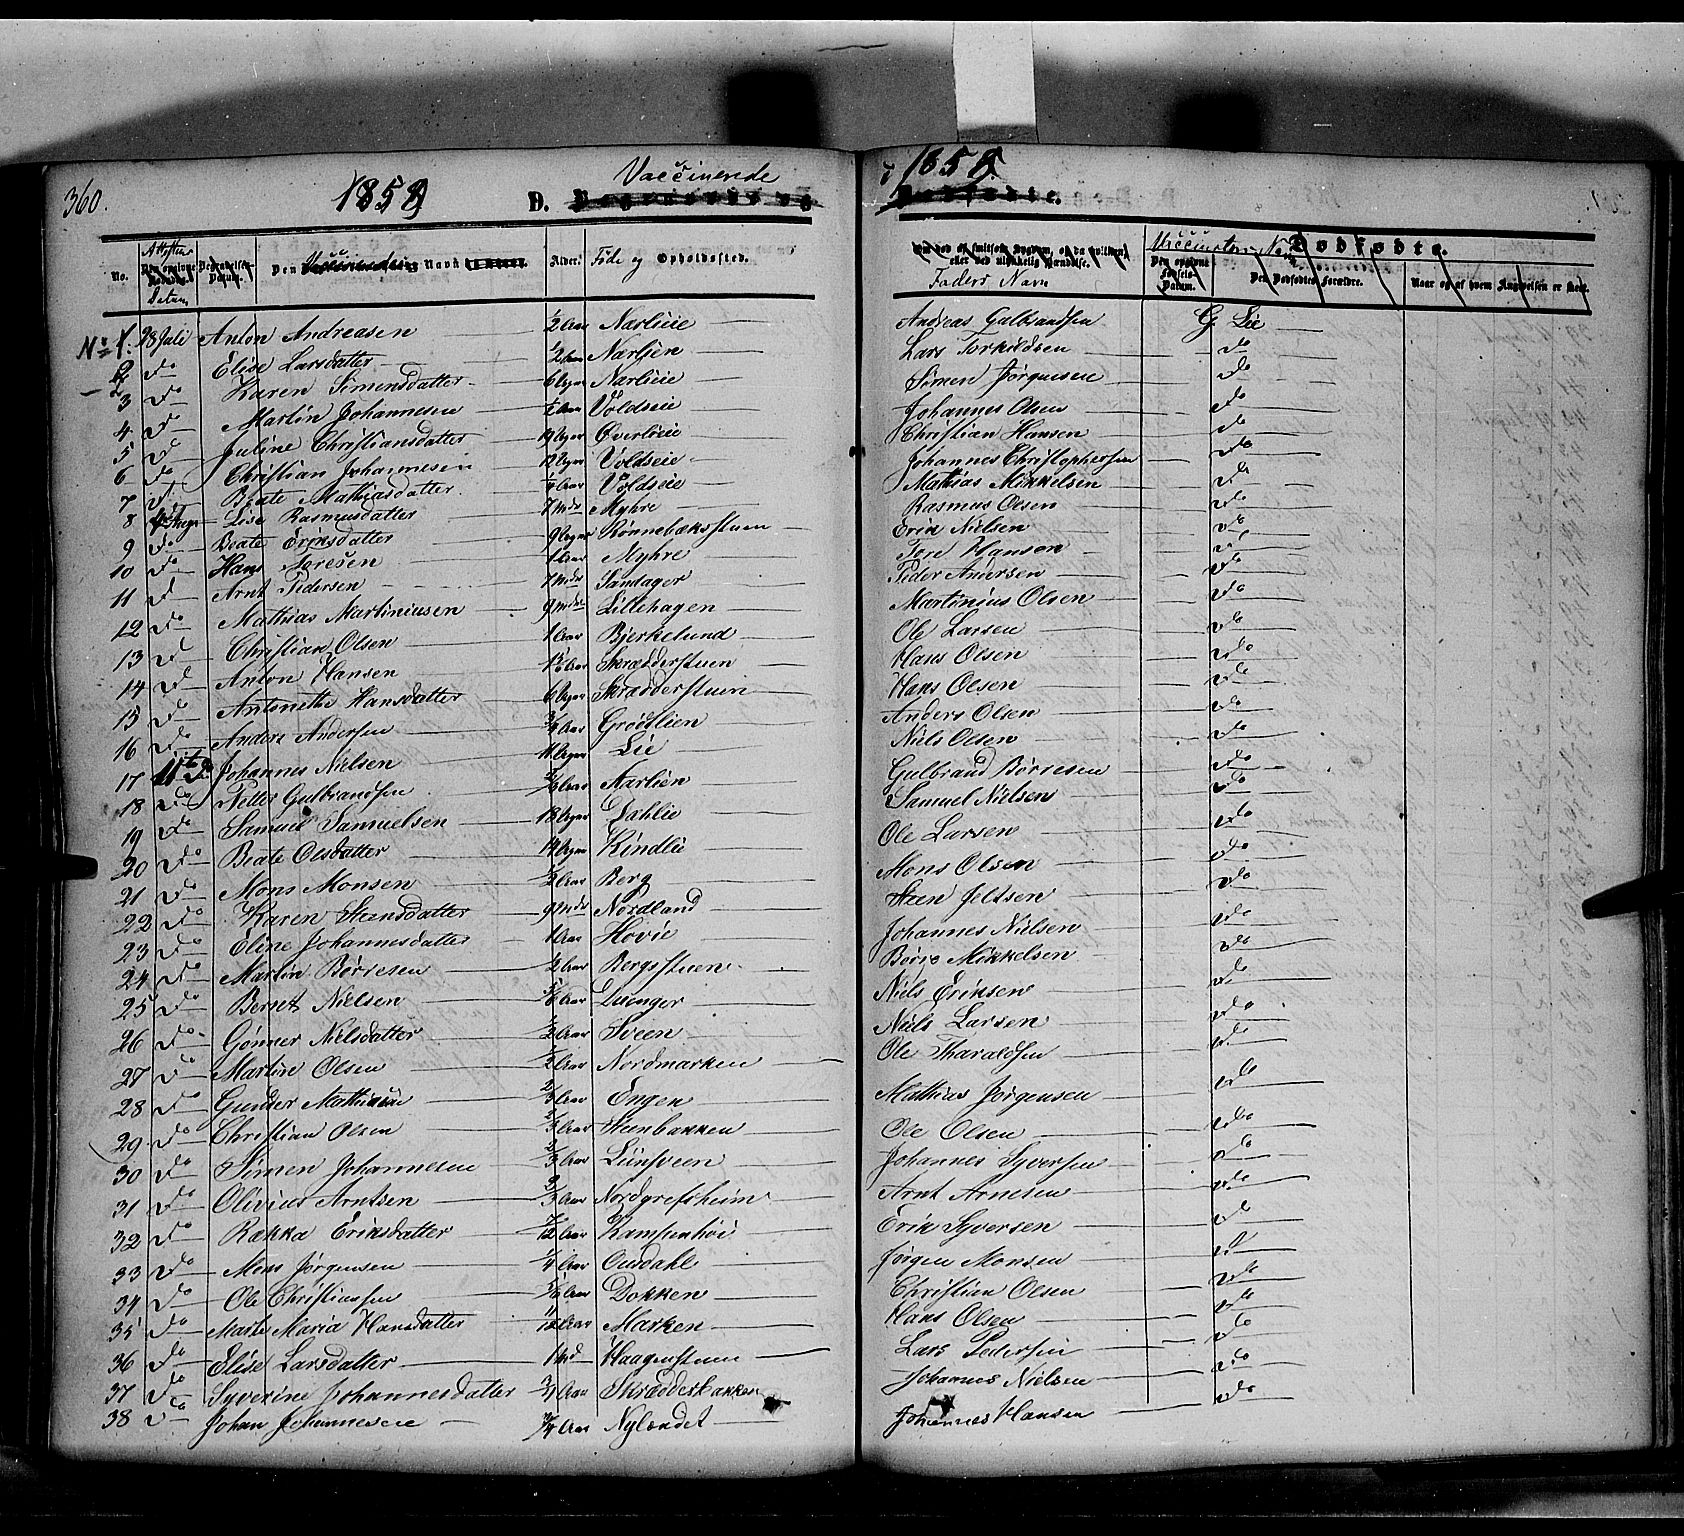 360.
1859
D.
Vaccinerede
1859.
No.
Attestens Datum
Den
Navn
Alder.
Føde og Opholdssted.
Faders Navn
Vaccinateurs Navn
Dødfødte.
Den Dødfødtes Forældre.
Naar og af hvem Angivelsen er skeet.
No 1. 28 Juli Anton Andreasen — 1/2 Aar Narlieie — Andreas Gulbrandsen G. Lie
2 Do Elise Larsdatter — 1/2 Aar Nærlien — Lars Torkildsen — do
3 Do Karen Simensdatter — 6 Ugur Narlieie — Simen Jørgensen — do
4 Do Martin Johannesen — Aar Voldseie — Johannes Olsen — do
5 D Juline Christiansdatter — Ugur Øverlieie — Christian Hansen — do
6 Do Christian Johannesen — 12 Ugur Voldseie — Johannes Christophersen do
7 D Beate Mathiasdatter — Aar Voldseie — Mathias Mikkelsen — d
8 Lise Rasmusdatter — 7 Mdr Myhre — Rasmus Olsen — do
9 Do Beate Eriksdatter — 9 Ugur Rønnebæksstuen Erik Nielsen — do
10 Do Hans Toresen — 1 Aar Myhre — Tore Hansen — do
11 D Arnt Pedersen — 7 Mdr Sandager — Peder Andersen — do
12 Do Mathias Martiniusen — 9 Mdr Lillehagen — Martinius Olsen — do
13 D Christian Olsen — 1 Aar Bjerkelund — Ole Larsen — do
14 D Anton Hansen — Aar Skrædderstuen — Hans Olsen — do
15 Do Antonette Hansdatter — 6 Ugur Skrædderstuen — Hans Olsen — do
16 Do Anders Andersen — 3/4 Aar Grødtlien — Anders Olsen — do
17 Johannes Nielsen — 11 Ugur Lie — Niels Olsen — do
18 Do Peder Gulbrandsen — Aar Aarlien — Gulbrand Børresen — do
19 Do Samuel Samuelsen — 18 Ugur Dahlie — Samuel Nielsen — do
20 Do Beate Olsdatter — 14 Ugur Kindlie — Ole Larsen — do
21 Do Mons Monsen — 1/2 Aar Berg — Mons Olsen — do
22 Do Karen Steensdatter — 9 Mdr Nordland — Steen Jeltsen — do
23 Do Eline Johannesdatter — 1 Aar Hovie — Johannes Nielsen — do
24 Do Martin Børresen — 1/2 Aar Bergsstuen — Børre Mikkelsen — do
25 Do Bernt Nielsen — 5/6 Aar — Niels Eriksen — do
26 Do Gønner Nielsdatter — 1/2 Aar Sveen — Niels Larsen — do
27 Do Martin Olsen — Aar Nordmarken — Ole Haraldsen — do
28 Do Gunder Mathiasen — 2/3 Aar Engen — Mathias Jørgensen — do
29 Do Christian Olsen — 2/3 Aar Steenbakken — Ole Olsen — do
30 Do Simen Johannesen — 2/3 Aar Liinsveen — Johannes Syversen — do
31 Do Olivius Arntsen — 2/3 Aar Nordgrefsheim — Arnt Arnesen — do
32 Do Rækka Eriksdatter — 7/12 Aar — Erik Syversen — do
33 Do Mons Jørgensen — 1/4 Aar Ousdahl — Jørgen Monsen — do
34 Do Ole Christiansen — 5/6 Aar Dokken — Christian Olsen — do
35 Do Marte Maria Hansdatter — 11/12 Aar Marken — Hans Olsen — do
36 Do Elise Larsdatter — 1 Md Haagenstuen — Lars Pedersen — do
37 Do Syverine Johannesdatter 3/4 Aar Skræddesbakken Johannes Nielsen — do
38 Do Johan Johannesen — 3/4 Aar Nylændet — Johannes Hansen — do